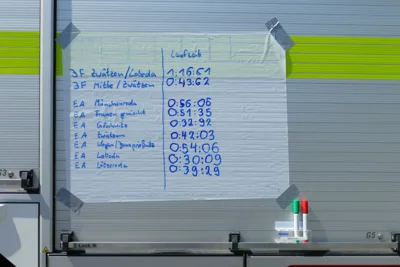 Laufzeit
JF Zwätzen/Lobeda 1:16:51
JF Mitte/Zwätzen 0:43:62
EA Münchenroda 0:56:06
EA 0:51:35
EA 0:32:92
EA Zwätzen 0:42:03
EA 0:54:06
EA Lobeda 0:30:09
EA Lützeroda 0:39:29